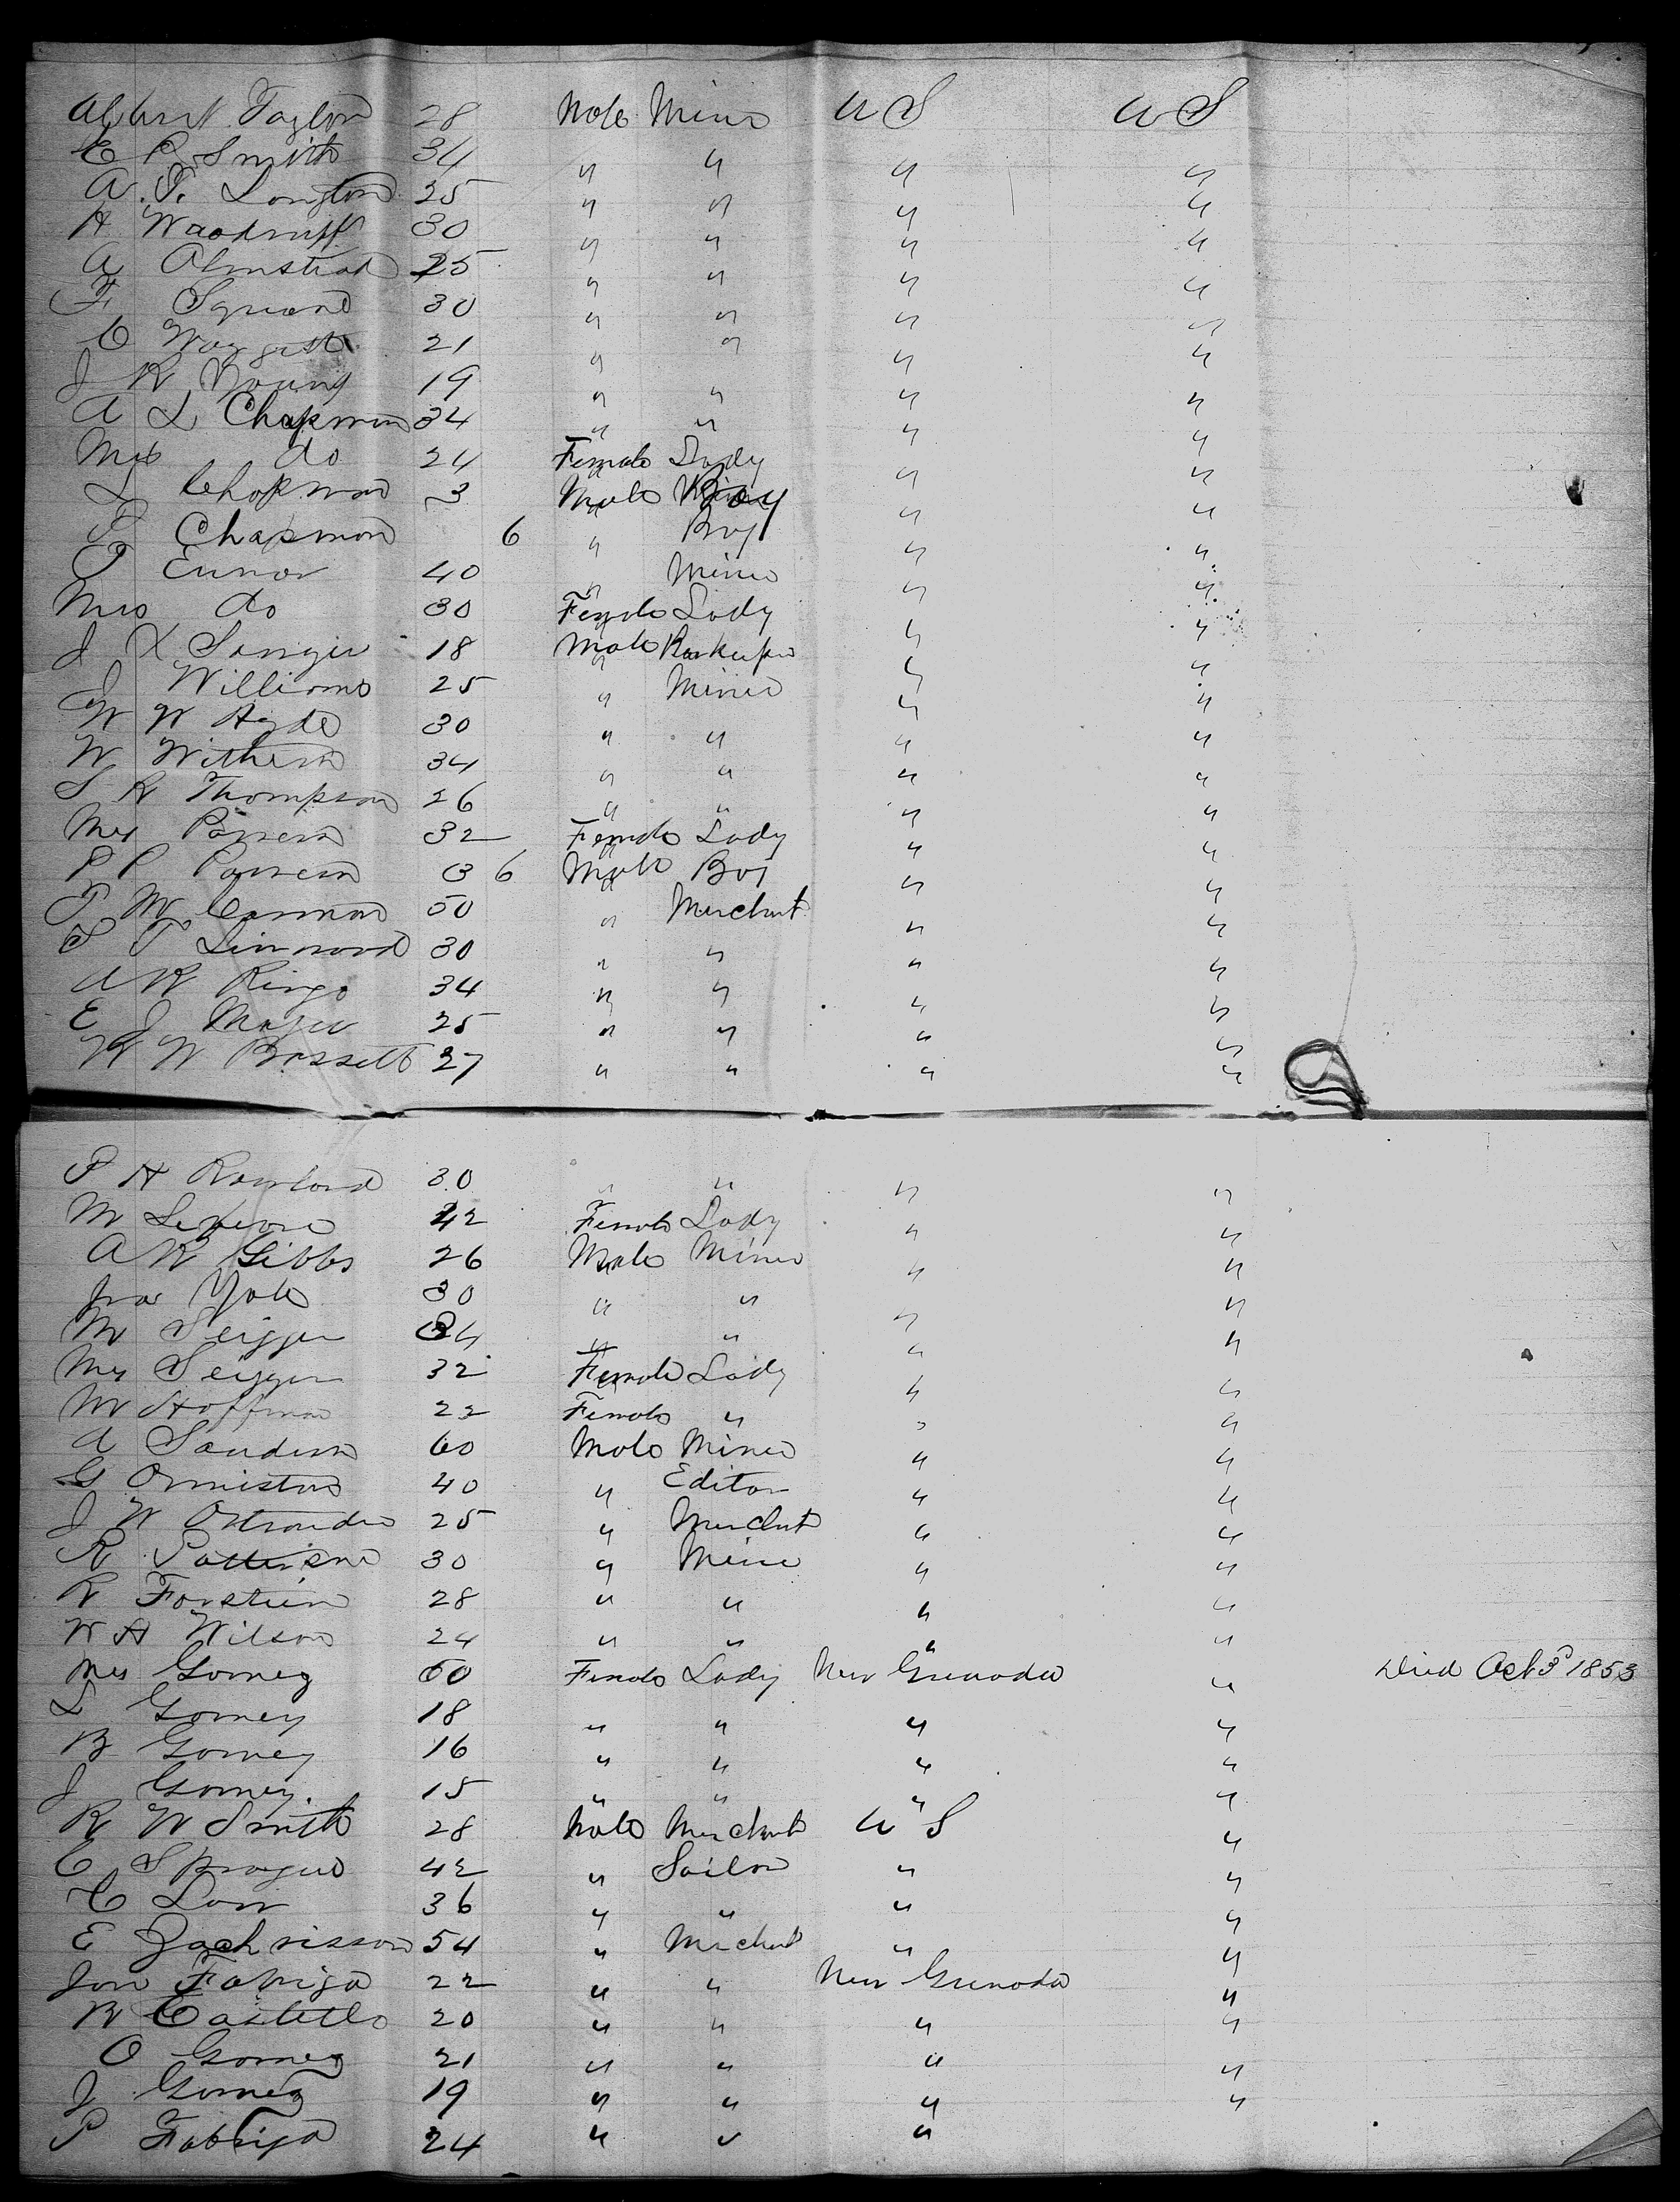 Albert Taylor 28 Male Miner U S U S
E P Smith 34 " " " "
A. F. Langton 25 " " " "
H Woodruff 30 " " " "
A Olmstead 25 " " " "
F 30 " " " "
C 21 " " " "
J R Young 19 " " " "
A L Chapman 34 " " " "
Mrs do 24 Female Lady " "
L Chapman 3 Male Boy " "
P Chapman 6 " Boy " "
P 40 " Miner " "
Mrs do 30 Female Lady " "
J X Sanger 18 Male Barkeeper " "
J Williams 25 " Miner " "
W W Hyde 30 " " " "
W Withern 34 " " " "
S R Thompson 26 " " " "
Mrs 32 Female Lady " "
P P 3 6 Male Boy " "
P W 50 " Merchant " "
S T Linwood 30 " " " "
A R Ringo 34 " " " "
E J Major 25 " " " "
H W Bassett 27 " " " "
P H Rowland 30 " " " "
M 42 Female Lady " "
A R Gibbs 26 Male Miner " "
Yale 30 " " " "
M Seigger 34 " " " "
Mrs Seigger 32 Female Lady " "
M Hoffman 22 Female " " "
A Sanderson 60 Male Miner " "
G Ormiston 40 " Editor " "
J W Ostrander 25 " Merchant " "
R Patterson 30 " Miner " "
R 28 " " " "
W H Wilson 24 " " " "
Mrs Gomez 50 Female Lady New Grenada " Died Oct 3d 1853
L Gomez 18 " " " "
B Gomez 16 " " " "
J Gomez. 15 " " " "
R W Smith 28 Male Merchant U S "
C Sprague 42 " Sailor " "
C Low 36 " " " "
E Zachrisson 54 " Merchant " "
Jon Fabriga 22 " " New Grenada "
B Castello 20 " " " "
O Gomez 21 " " " "
J Gomez 19 " " " "
P Fabriga 24 " " "